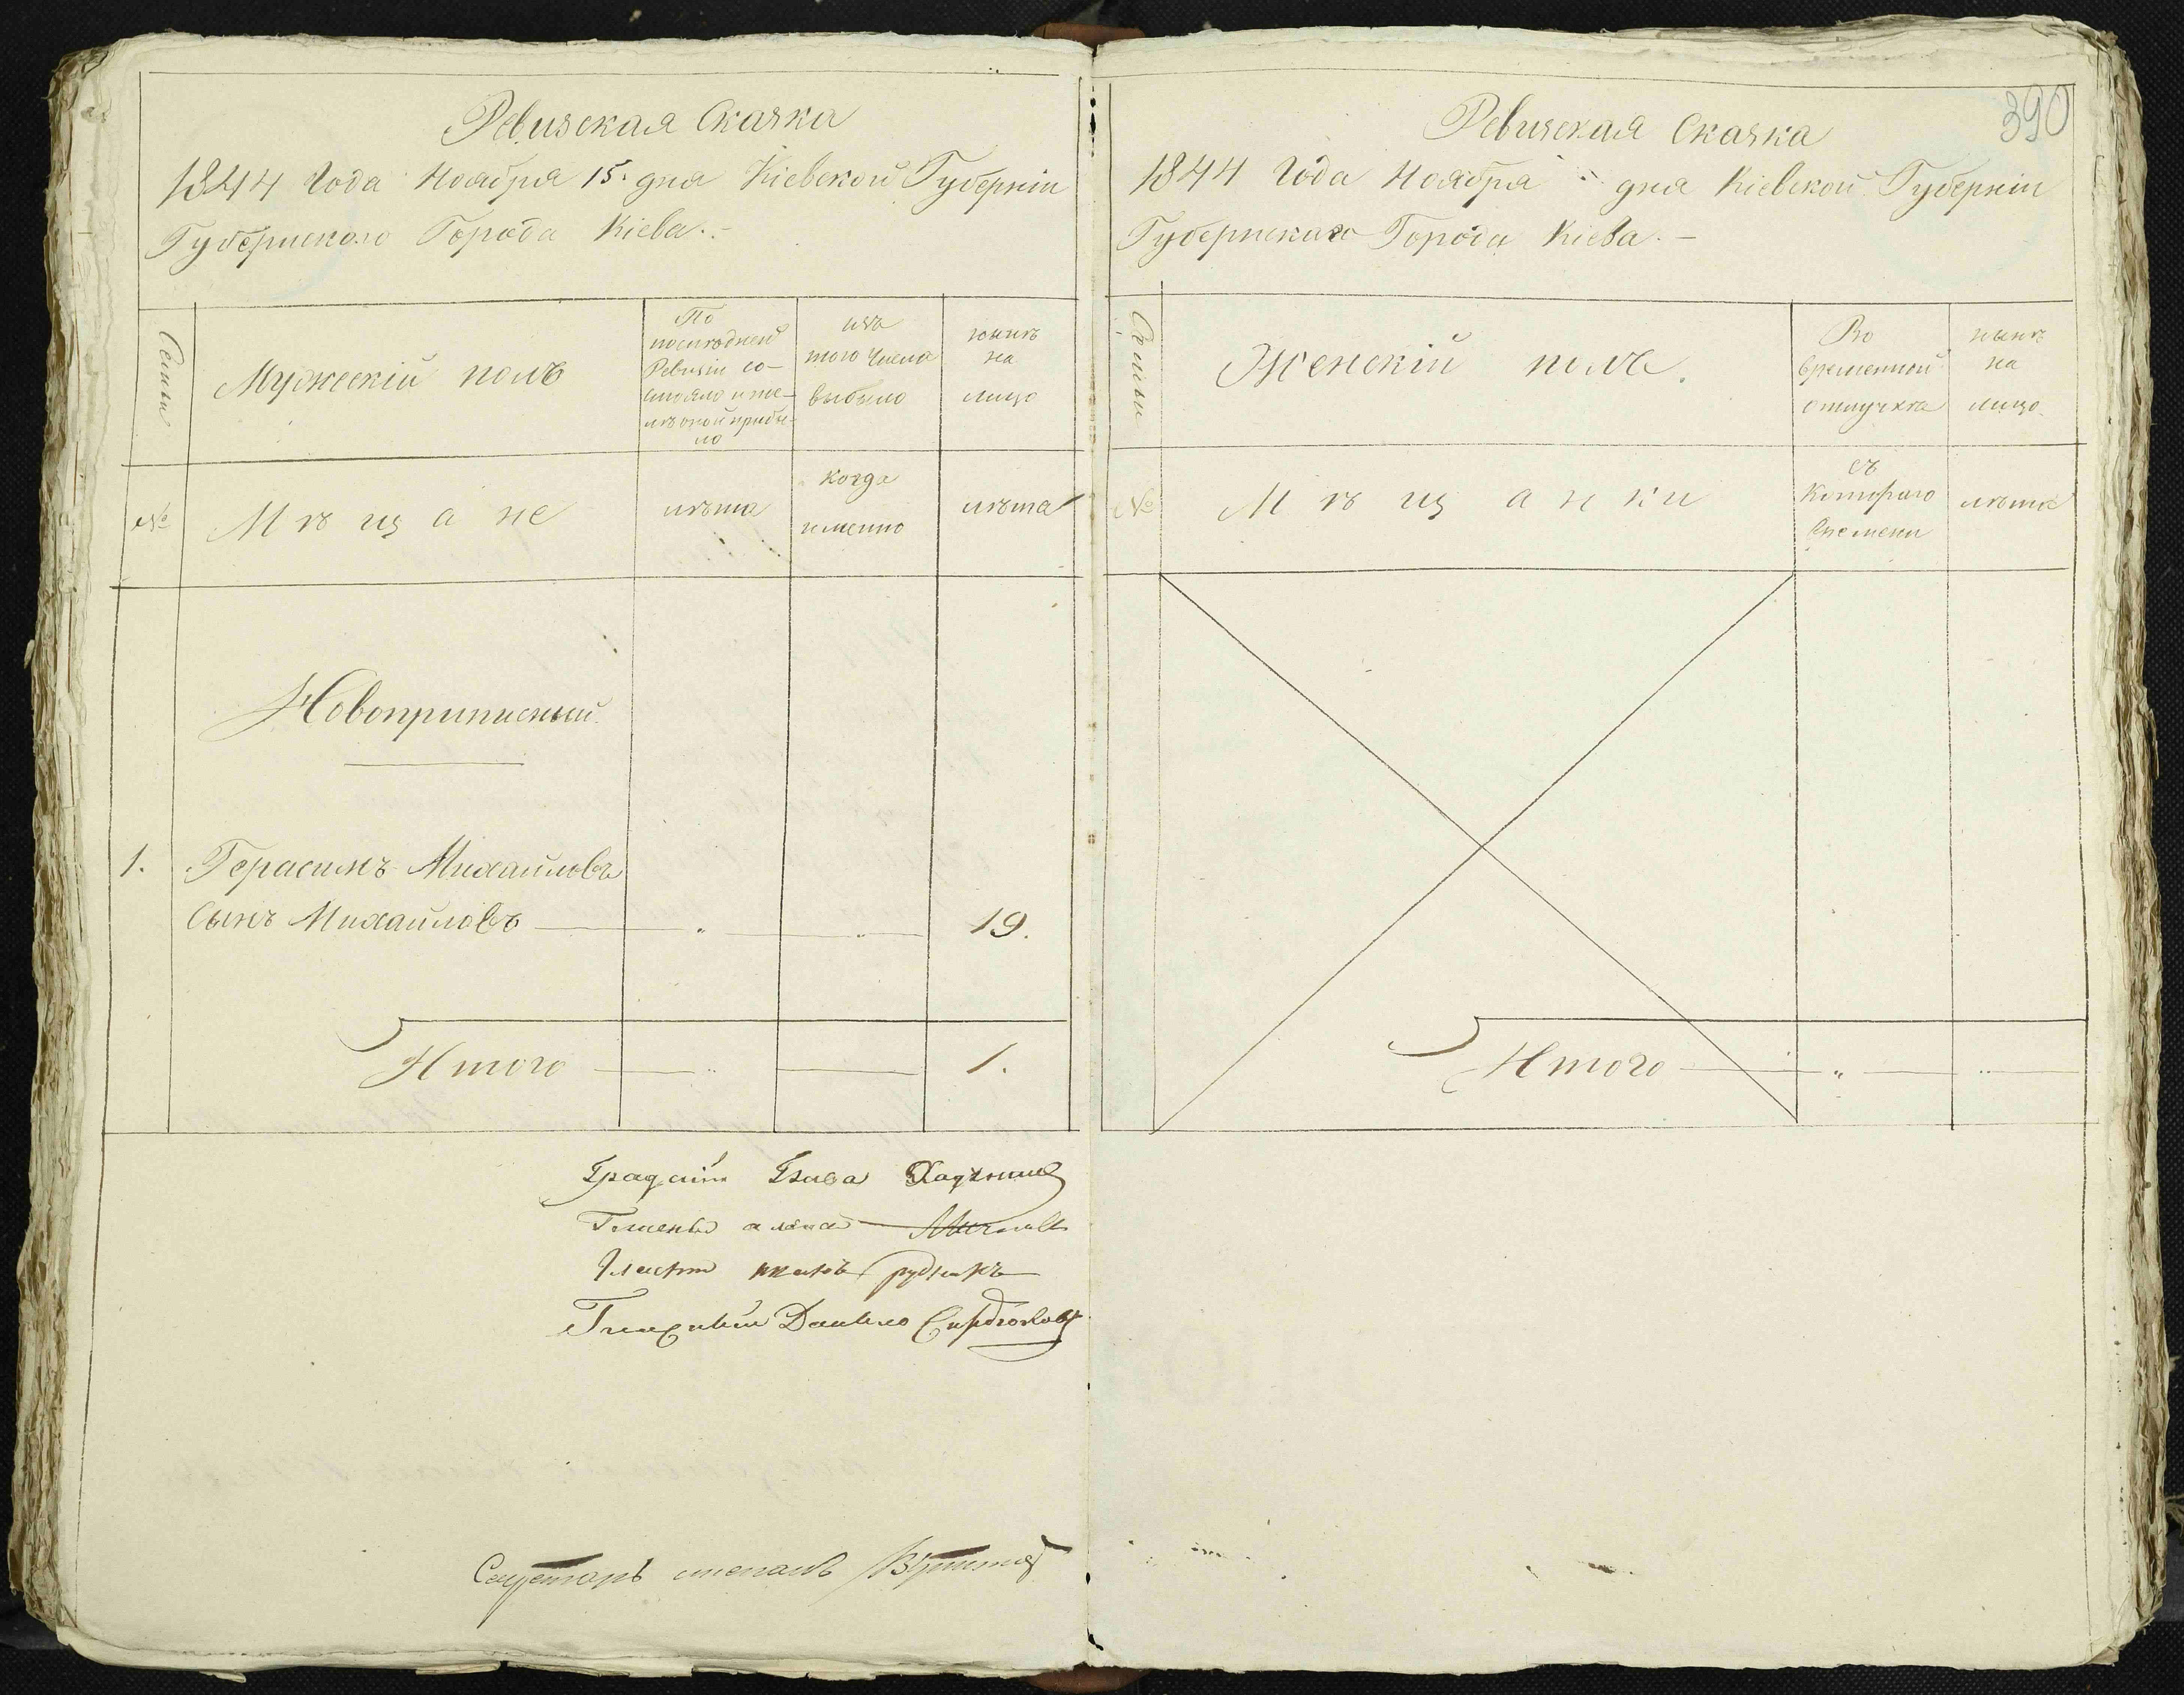 Ревизская Сказка
1844 Года Ноября 15 дня Кіевской Губерніи
Губернскаго Города Кіева.
Семьи
Мужескій полъ
По
последней
Ревизіи со-
стояло и по-
слѣ оной прибы-
ло
изъ
того числа
выбыло
нынѣ
на
лицо
№
Мѣщане
лѣта
когда
именно
лѣта
Новоприписный
1. Герасимъ Михайловъ
Сынъ Михайловъ — " — " — 19.
Итого — " — 1.
Градскій Глава Ходуновъ
Гласный
Гласный Рудникъ
Гласный Данило
Секретарь
390
Ревизская Сказка
1844 Года Ноября " дня Кіевской Губерніи
Губернскаго Города Кіева. —
Семьи
Женскій полъ.
Во
временной
отлучкѣ
нынѣ
на
лицо
№
Мѣщанки
съ
котораго
времени
лѣта
Итого — " — " —